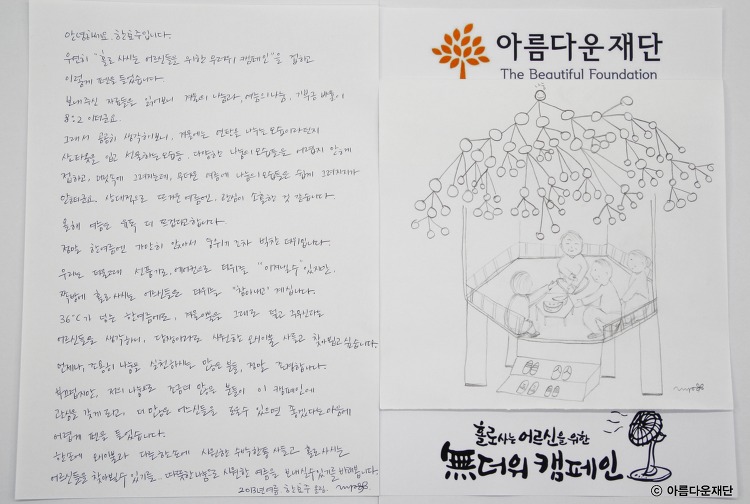 안녕하세요. 한효주입니다.
우연히 "홀로 사시는 어르신들을 위한 무더위 캠페인"을 접하고
이렇게 펜을 들었습니다.
보내주신 자료들을 읽어보니 겨울의 나눔과, 여름의 나눔, 기부금 비율이
8:2 이더군요.
그래서 곰곰히 생각하보니, 겨울에는 연탄을 나누는 모습이라던지
산타옷을 입고 선물하는 모습등, 다양한 나눔의 모습들은 어렵지 않게
접하고, 머릿속에 그려지는데, 무더운 여름에 나눔의 모습들은 쉽게 그려지지가
않더군요. 상대적으로 뜨거운 여름엔, 관심이 소홀한 것 같습니다.
올해 여름은 유독 더 뜨겁다고합니다.
정말 한여름엔 가만히 있어서 숨쉬기 조차 벅찬 더위입니다.
우리는 더울때 선풍기로, 에어컨으로 더위를 "이겨낼수" 있지만,
쪽방에 홀로 사시는 어르신들은 더위를 "참아내고" 계십니다.
36℃가 넘는 한여름에도, 겨울이불을 그대로 덮고 주무신다는
어르신들을 생각하니, 당장이라도 시원한 모시이불 사들고 찾아뵙고 싶습니다.
언제나, 조용히 나눔을 실천하시는 많은 분들, 정말 존경합니다.
부끄럽지만, 저의 나눔으로 조금더 많은 분들이 이 캠페인에
관심을 갖게 되고, 더 많은 어르신들을 도울수 있으면 좋겠다는 마음에
어렵게 펜을 들었습니다.
한손에 모시이불과 다른한손에 시원한 수박한통 사들고 홀로 사시는
어르신들을 찾아뵐수 있기를. 따뜻한 나눔으로 시원한 여름을 보내실수있기를 바래봅니다.
2013년 여름 한효주 올림.
아름다운재단
The Beautiful Foundation
홀로 사는 어르신을 위한
無더위 캠페인
© 아름다운재단